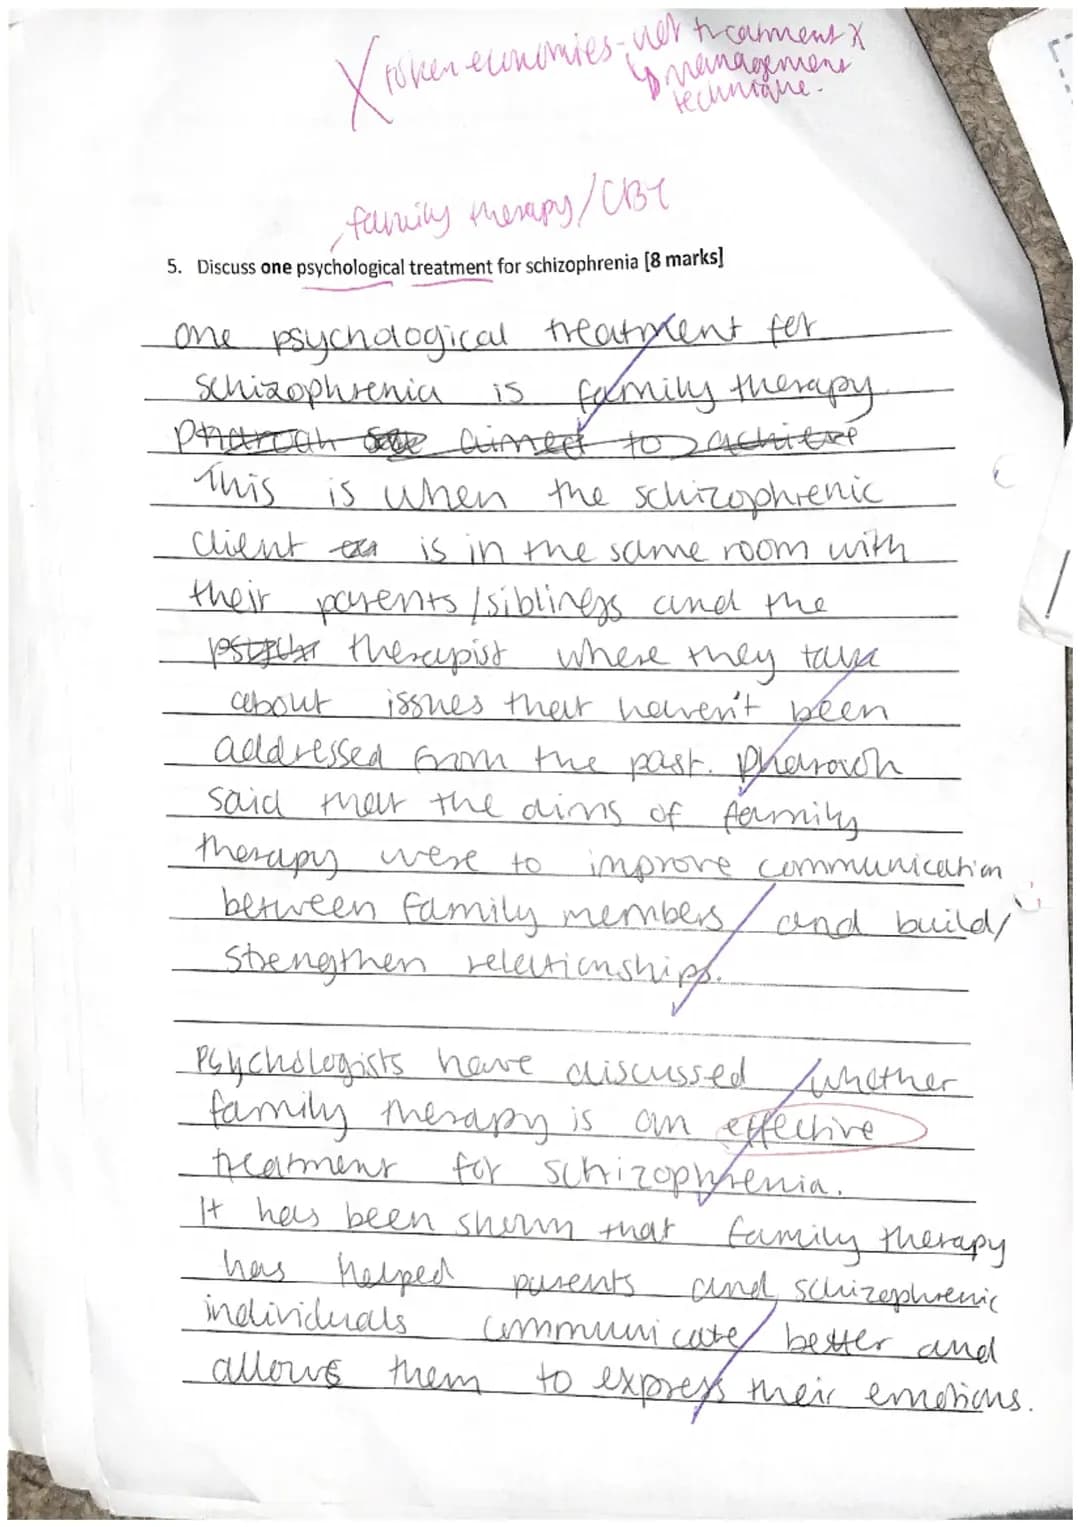 X token economies - not treatment X
↳ management
technique.
family therapy/CBT
5. Discuss one psychological treatment for schizophrenia [8 marks]
One psychological treatment for
schizophrenia is family therapy.
Pharoah aimed to achieve
This is when the schizophrenic
client is in the same room with
their parents/siblings and the
therapist where they talk
about issues that haven't been
addressed from the past. Pharoah
said that the aims of family
therapy were to improve communication
between family members and build/
strengthen relationships.
Psychologists have discussed whether
family therapy is an effective
treatment for schizophrenia.
It has been shown that family therapy
has helped parents and schizophrenic
individuals communicate better and
allows them to express their emotions.